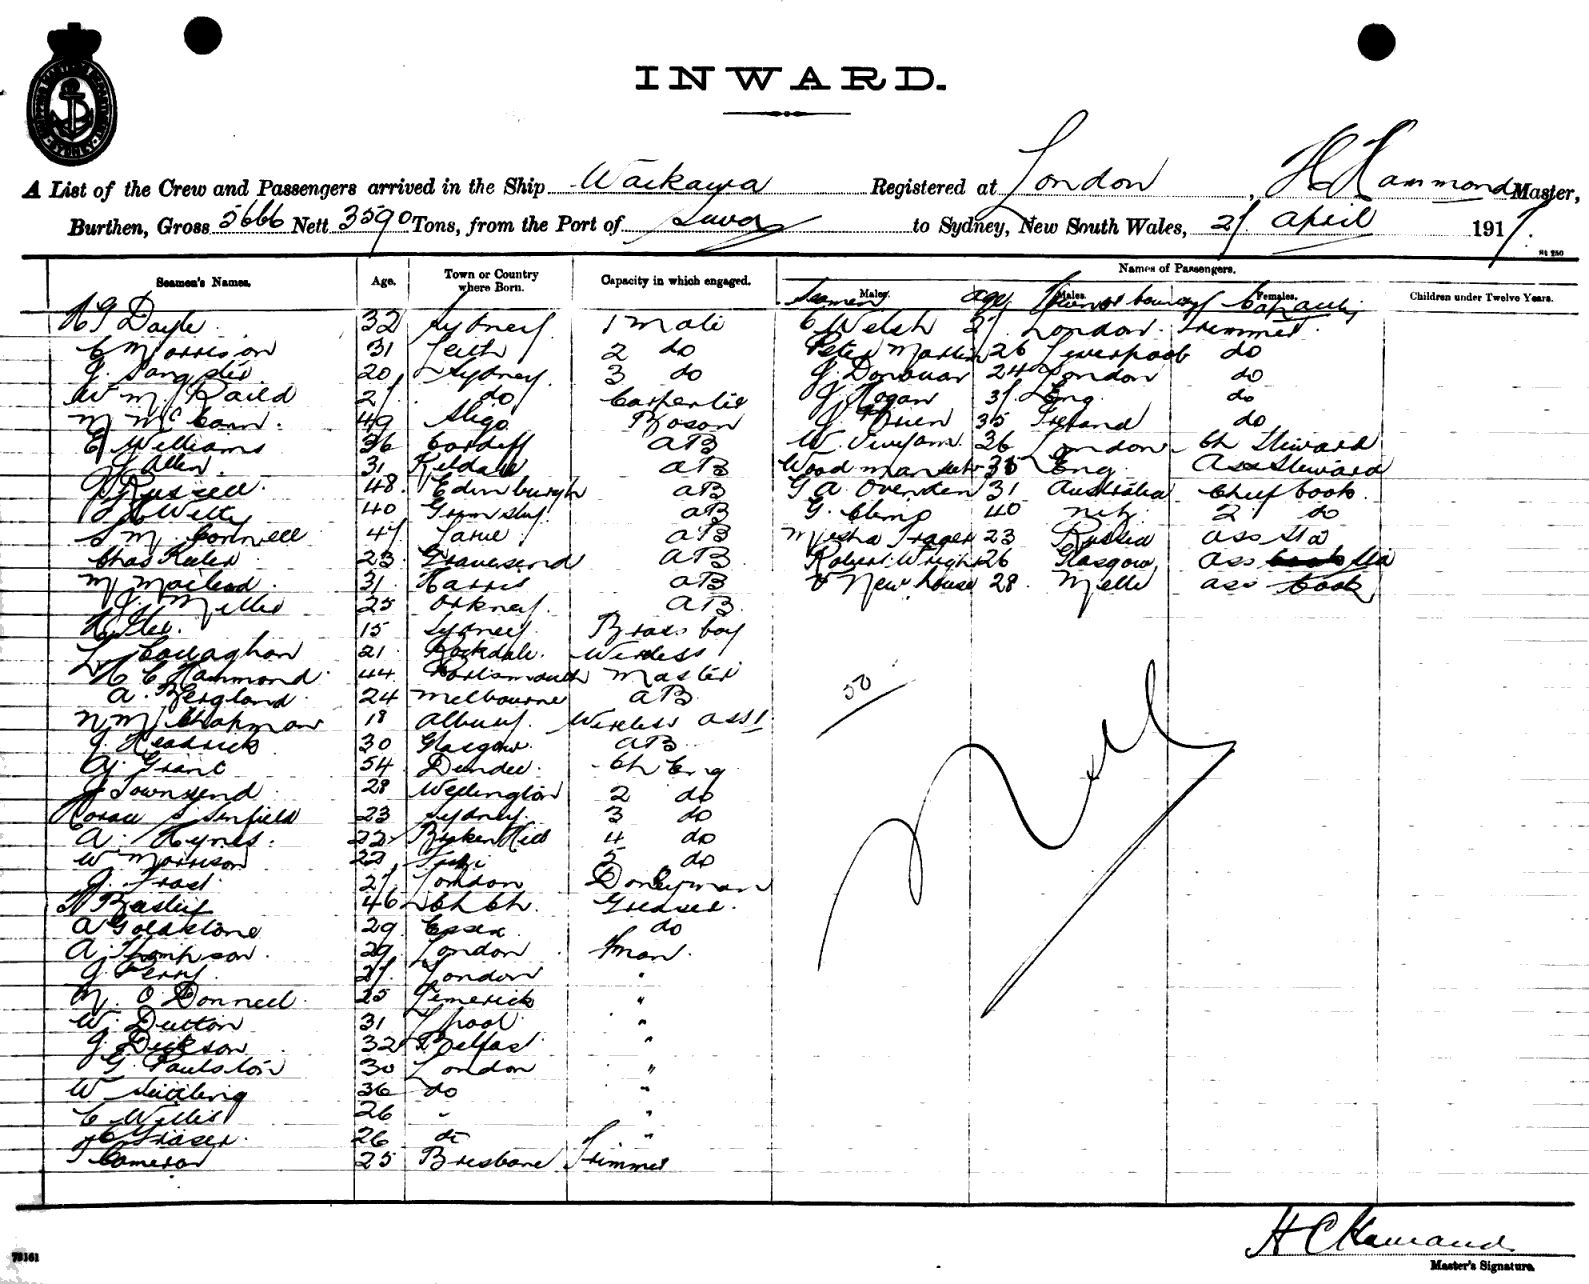 INWARD.
A List of the Crew and Passengers arrived in the Ship Waikawa Registered at London, H C Hammond Master,
Burthen, Gross 5666 Nett 3590 Tons, from the Port of Suva to Sydney, New South Wales, 27 April 1917.
Seamen's Names. Age. Town or Country where Born. Capacity in which engaged. Names of Passengers.
Males. Males. Females. Children under Twelve Years.
Seamen age Capacity
Doyle 32 Sydney 1 Mate C Welsh 27 London Trimmer
C Morrison 31 Leith 2 do Peter Martin 26 Liverpool do
20 Sydney 3 do J Donovan 24 London do
Wm Baild 27 do Carpenter J Hogan 37 Eng do
M McCann 49 Sligo Boson J OBrien 35 Ireland do
E Williams 36 Cardiff AB W. 36 London Ch Steward
J Allen 31 AB 35 Eng Ass Steward
J Russell 48 Edinburgh AB G A Ovenden 31 Australia Chief Cook
40 Grimsby AB G. 40 2 do
47 AB 23 Russia Ass Std
Chas 23 Gravesend AB Robert Wright 26 Glasgow Ass Std
M Macleod 31 Harris AB Newhouse 28 Melb Ass Cook
25 Orkney AB
15 Sydney Brass boy
L Callaghan 21 Rockdale Wireless
H C Hammond 44 Portsmouth Master
A. Bergland 24 Melbourne AB
N M Chapman 18 Albury Wireless Asst
50
J Headrick 30 Glasgow AB
A J Grant 54 Dundee Ch Eng
J Townsend 28 Wellington 2 do
Horace S 23 Sydney 3 do
A Hynes 22 Broken Hill 4 do
W Morrison 22 5 do
J Frost 27 London Donkeyman
46 Ch Ch Greaser
A Goldstone 29 Essex do
A Thompson 29 London Fman
Nil
J Perry 27 London "
M. O'Donnell 25 Limerick "
W. Dutton 31 Lpool "
J. Dickson 32 Belfast "
G. Paulston 30 London "
W 36 do "
C Willis 26 " "
Fraser 26 do "
Cameron 25 Brisbane Trimmer
H C Hammond
Master's Signature.
73161